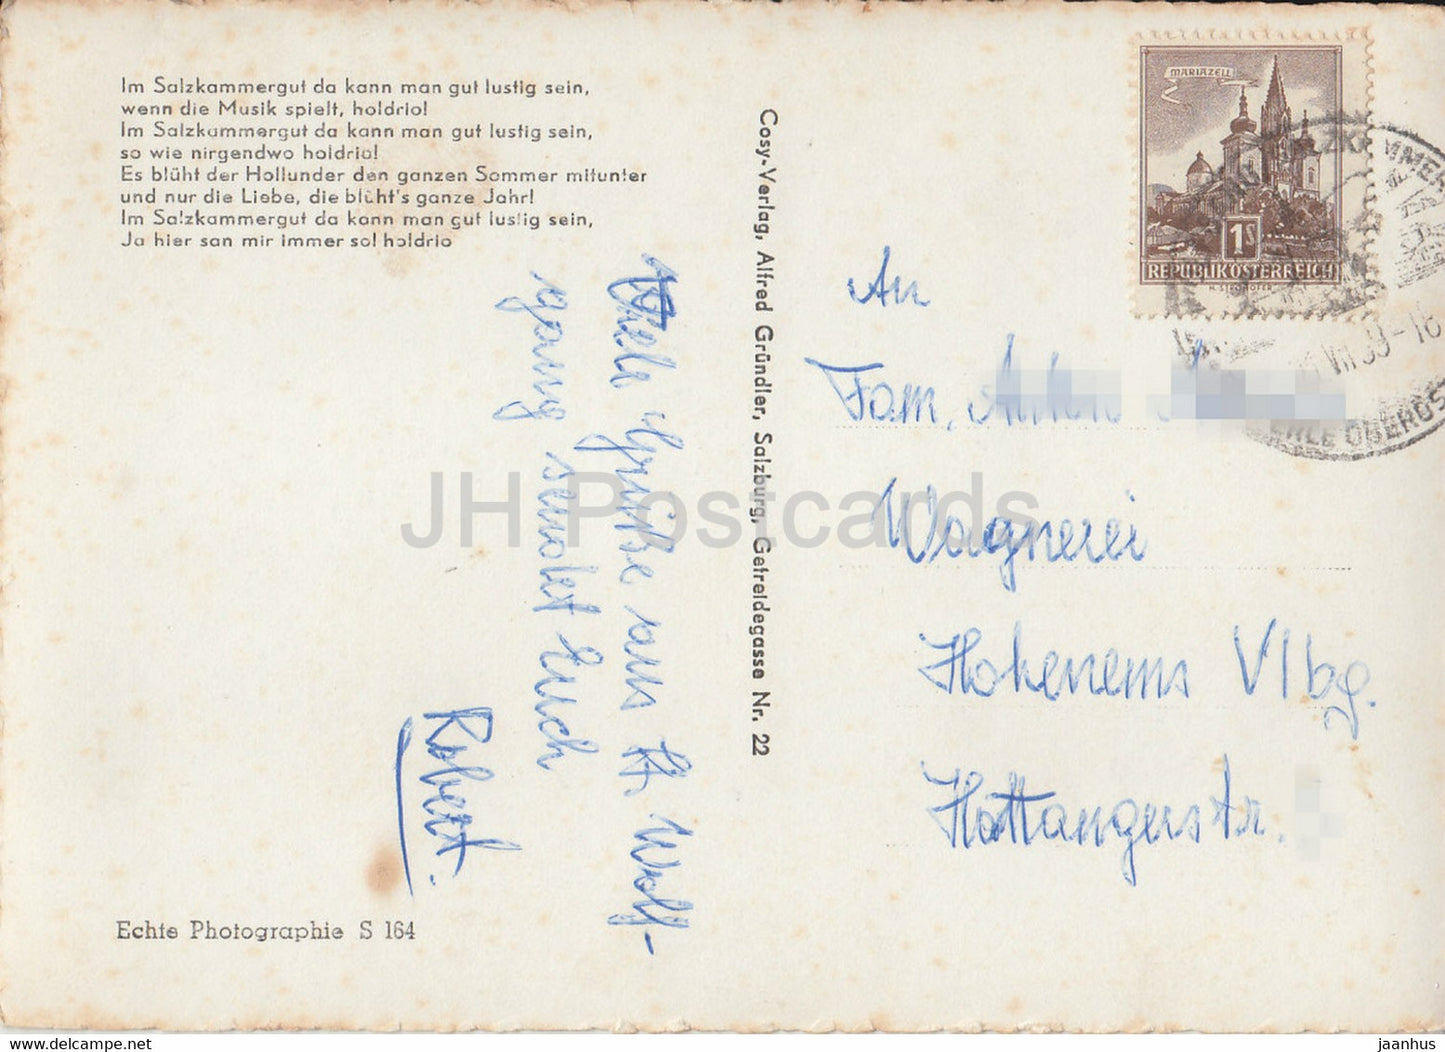 Im Salzkammergut da kann man gut lustig sein,
wenn die Musik spielt, holdrio!
Im Salzkammergut da kann man gut lustig sein,
so wie nirgendwo holdrio!
Es blüht der Hollunder den ganzen Sommer mitunter
und nur die Liebe, die blüht's ganze Jahr!
Im Salzkammergut da kann man gut lustig sein,
Ja hier san mir immer so! holdrio
Viele Grüße aus St. Wolf-
gang sendet Euch
Robert.
Echte Photographie S 164
Cosy-Verlag, Alfred Gründler, Salzburg, Getreidegasse Nr. 22
MARIAZELL
1S
REPUBLIK ÖSTERREICH
H. STROHOFER
VII 59-18
An
Fam. Anton
Wagnerei
Hohenems Vlbg.
Hottangerstr.
JH Postcards
www.delcampe.net
jaanhus